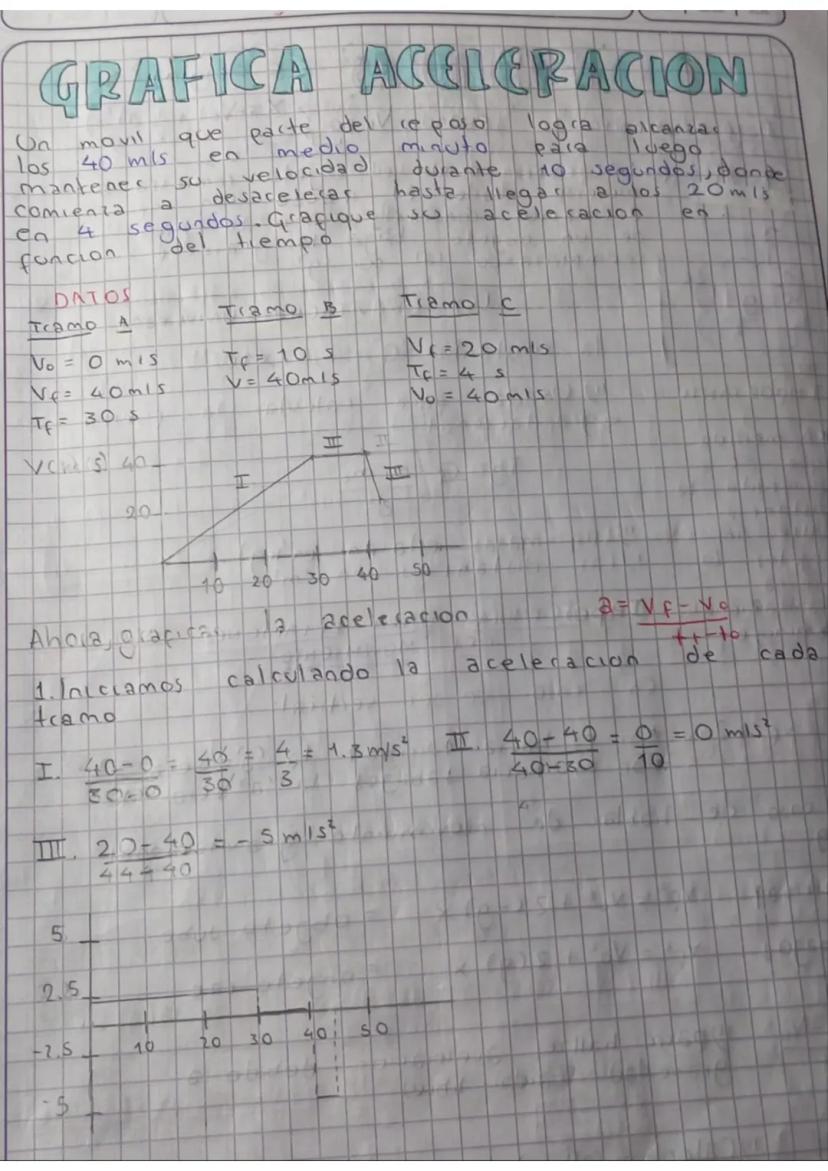 GRAFICA ACELERACION
Un movil que parte del reposo logra alcanzar
los 40 m/s en medio minuto para luego
mantener su velocidad durante 10 segundos, donde
comienza a desacelerar hasta llegar a los 20 m/s
en 4 segundos. Grafique su aceleracion en
funcion del tiempo
DATOS
Tramo A Tramo B Tramo C
Vo = 0 m/s Tf = 10 s Vf = 20 m/s
Vf = 40 m/s V = 40 m/s Tf = 4 s
Tf = 30 s Vo = 40 m/s
II
V( s) 40
I III
20
10 20 30 40 50
Ahora, la aceleracion a = Vf - Vo / tf - to
1. Iniciamos calculando la aceleracion de cada
tramo
I. 40-0 / 30-0 = 40 / 30 = 4 / 3 = 1.3 m/s² II. 40-40 / 40-30 = 0 / 10 = 0 m/s²
III. 20-40 / 44-40 = -5 m/s²
5
2.5
10 20 30 40 50
-2.5
-5